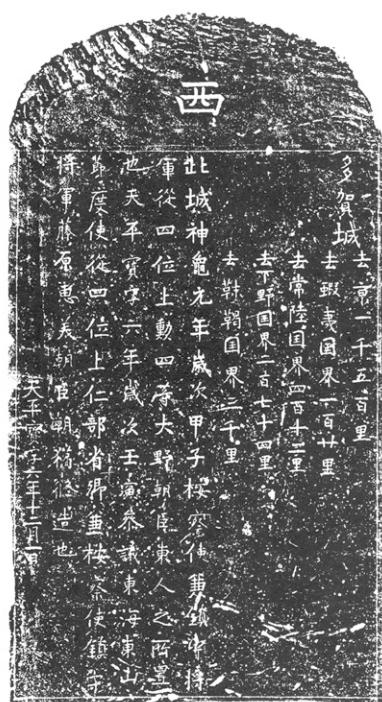 西
多賀城
去京一千五百里
去蝦夷国界一百廿里
去常陸国界四百十二里
去下野国界二百七十四里
去靺鞨国界三千里
此城神龜元年歳次甲子按察使兼鎮守将
軍從四位上勳四等大野朝臣東人之所置
也天平寶字六年歳次壬寅参議東海東山
節度使從四位上仁部省卿兼按察使鎮守
将軍藤原恵美朝臣朝獦修造也
天平寶字六年十二月一日